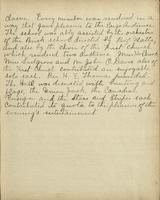 class. Every number was rendered in a
way that gave pleasure to the large audience.
The school was ably assisted by the orchestra
of the Parish school directed by
and also by the choir of the First Church
which rendered two anthems.
Miss and Mr. John O. Evans also of
the First Church contributed an enjoyable
solo each. Rev. H. E. Thomas presided.
The Hall was decorated with bunting and
flags, the Union Jack, the Canadian
Ensign and the Stars and Stripes each
contributed its quota to the pleasure of the
evening's entertainment.